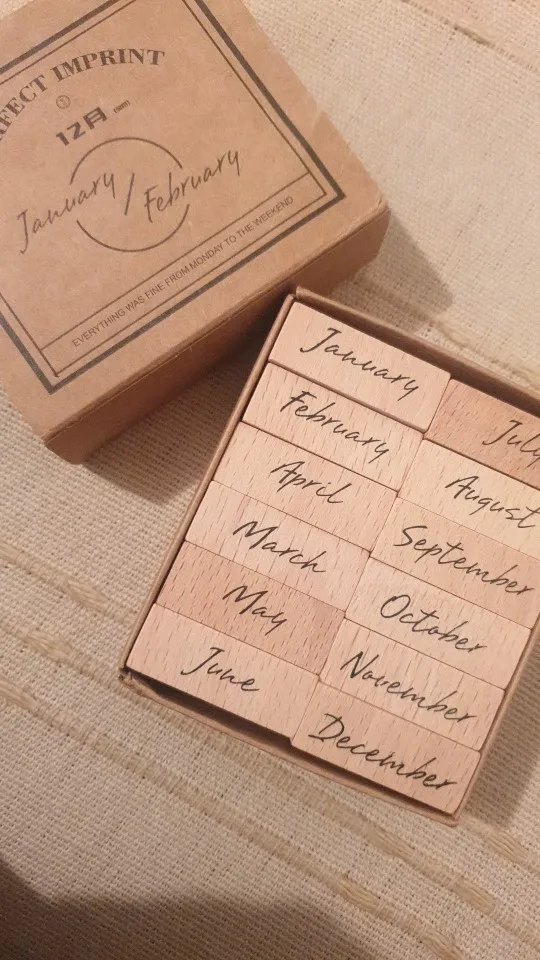 FECT IMPRINT
12月
January / February
EVERYTHING WAS FINE FROM MONDAY TO THE WEEKEND
January
February
April
March
May
June
July
August
September
October
November
December